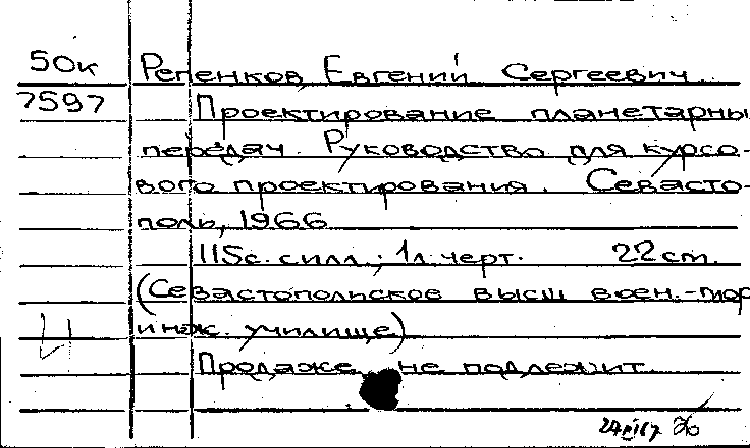 50к Репенков, Евгений Сергеевич.
7597 Проектирование планетарны
передач. Руководство для курсо-
вого проектирования. Севасто-
поль, 1966
115с. с илл.; 1л. черт. 22 cm.
(Севастопольское высш воен.-мор
инж. училище)
Продаже не подлежит